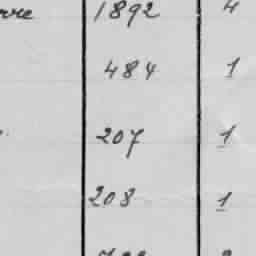 1892 4
484 1
207 1
208 1